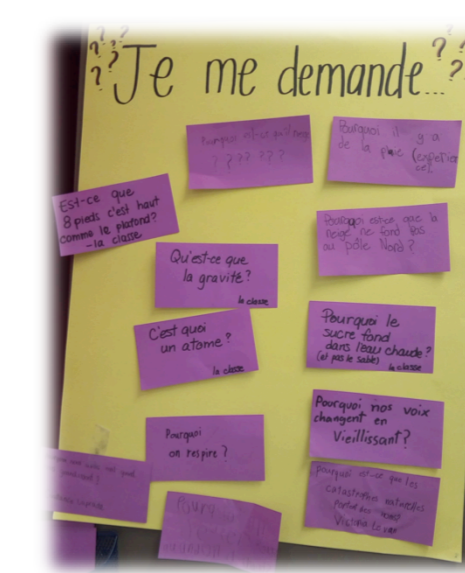 ??? Je me demande... ???
Pourquoi est-ce qu'il
? ? ? ? ? ?
Pourquoi il y a
de la pluie (experien
ce)
Est-ce que
8 pieds c'est haut
comme le plafond?
-la classe
Pourquoi est-ce que la
neige ne fond pas
au pôle Nord?
Qu'est-ce que
la gravité?
la classe
C'est quoi
un atome?
la classe
Pourquoi le
sucre fond
dans l'eau chaude?
(et pas le sable)
la classe
Pourquoi
on respire?
Pourquoi nos voix
changent en
vieillissant?
Pourquoi est-ce que les
catastrophes naturelles